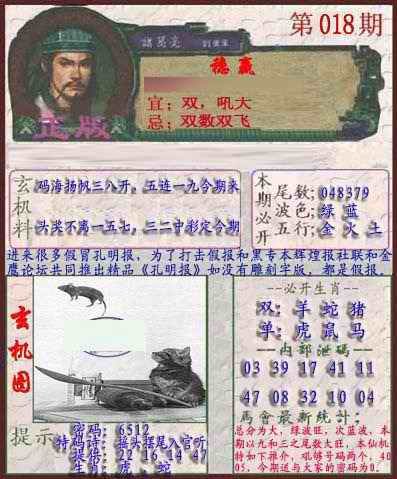 第018期
諸葛亮
稳赢
宜；双，吼大
忌；双数双飞
正版
玄机料
码海扬帆三八开，五连一九今期来
头奖不离一五七，三二中彩定今期
本期必开
尾数；048379
波色；绿 蓝
五行；金 火 土
进来很多假冒孔明报，为了打击假报和黑专本辉煌报社联和金
鹰论坛共同推出精品《孔明报》如没有雕刻字版，都是假报。
玄机图
提示
密码：6512
特码诗：摇头摆尾入官听
提待：22 16 14 47
生肖：虎、蛇
--必开生肖--
双：羊 蛇 猪
单：虎 鼠 马
--内部泄码--
03 39 17 41 11
47 08 32 10 04
马會最新统计：
总分为大，绿波旺，次蓝波，本
期以九和三之尾数大旺，本仙机
特如下推介，吼够号码两个，40
05，今期送与大家的密码为0。